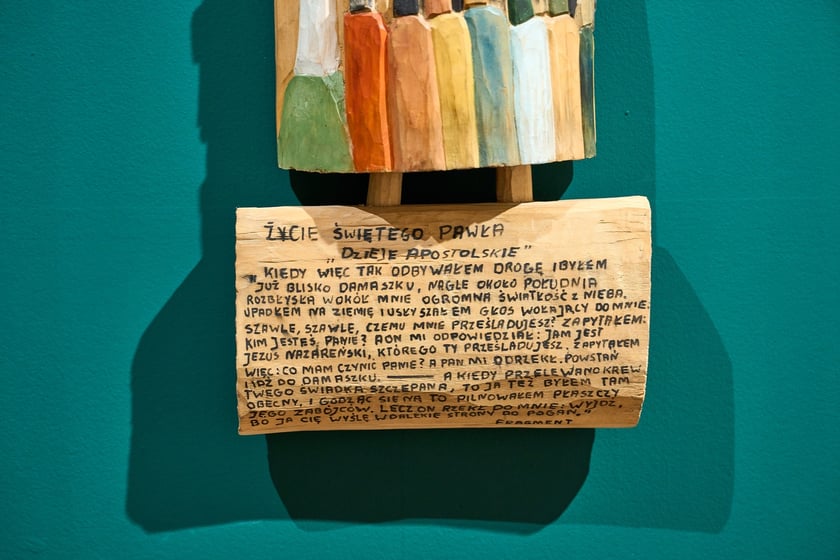 ŻYCIE ŚWIĘTEGO PAWŁA
„DZIEJE APOSTOLSKIE"
„KIEDY WIĘC TAK ODBYWAŁEM DROGĘ I BYŁEM
JUŻ BLISKO DAMASZKU, NAGLE OKOŁO POŁUDNIA
ROZBŁYSŁA WOKÓŁ MNIE OGROMNA ŚWIATŁOŚĆ Z NIEBA.
UPADŁEM NA ZIEMIĘ I USŁYSZAŁEM GŁOS WOŁAJĄCY DO MNIE:
SZAWLE, SZAWLE, CZEMU MNIE PRZEŚLADUJESZ? ZAPYTAŁEM:
KIM JESTEŚ PANIE? A ON MI ODPOWIEDZIAŁ: JAM JEST
JEZUS NAZAREŃSKI, KTÓREGO TY PRZEŚLADUJESZ. ZAPYTAŁEM
WIĘC: CO MAM CZYNIĆ PANIE? A PAN MI ODRZEKŁ. POWSTAŃ
I IDŹ DO DAMASZKU. —— A KIEDY PRZELEWANO KREW
TWEGO ŚWIADKA SZCZEPANA, TO JA TEŻ BYŁEM TAM
OBECNY, I GODZĄC SIĘ NA TO PILNOWAŁEM PŁASZCZY
JEGO ZABÓJCÓW. LECZ ON RZEKŁ PO MNIE: WYJDŹ,
BO JA CIĘ WYŚLĘ W DALEKIE STRONY DO POGAN."
FRAGMENT